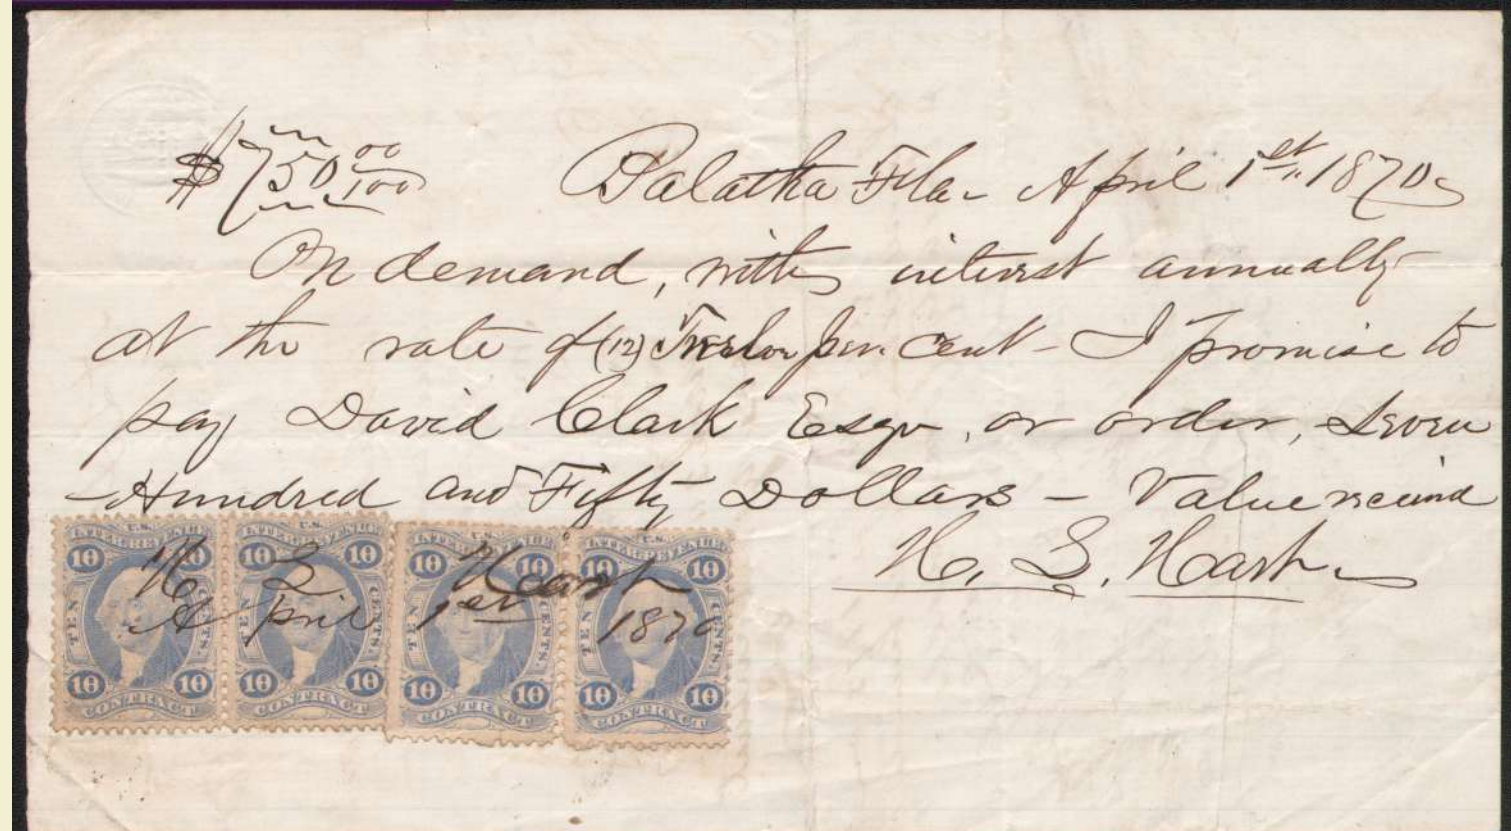 $750 00/100 Palatka Fla - April 1st. 1870
On demand, with interest annually
at the rate of (12) Twelve per. cent - I promise to
pay David Clark Esqr, or order, Seven
Hundred and Fifty Dollars - Value received
H. L. Hart
H L Hart
April 1st 1870
U.S. INTER. REVENUE 10 10 TEN CENTS. 10 10 CONTRACT
U.S. INTER. REVENUE 10 10 TEN CENTS. 10 10 CONTRACT
U.S. INTER. REVENUE 10 10 TEN CENTS. 10 10 CONTRACT
U.S. INTER. REVENUE 10 10 TEN CENTS. 10 10 CONTRACT